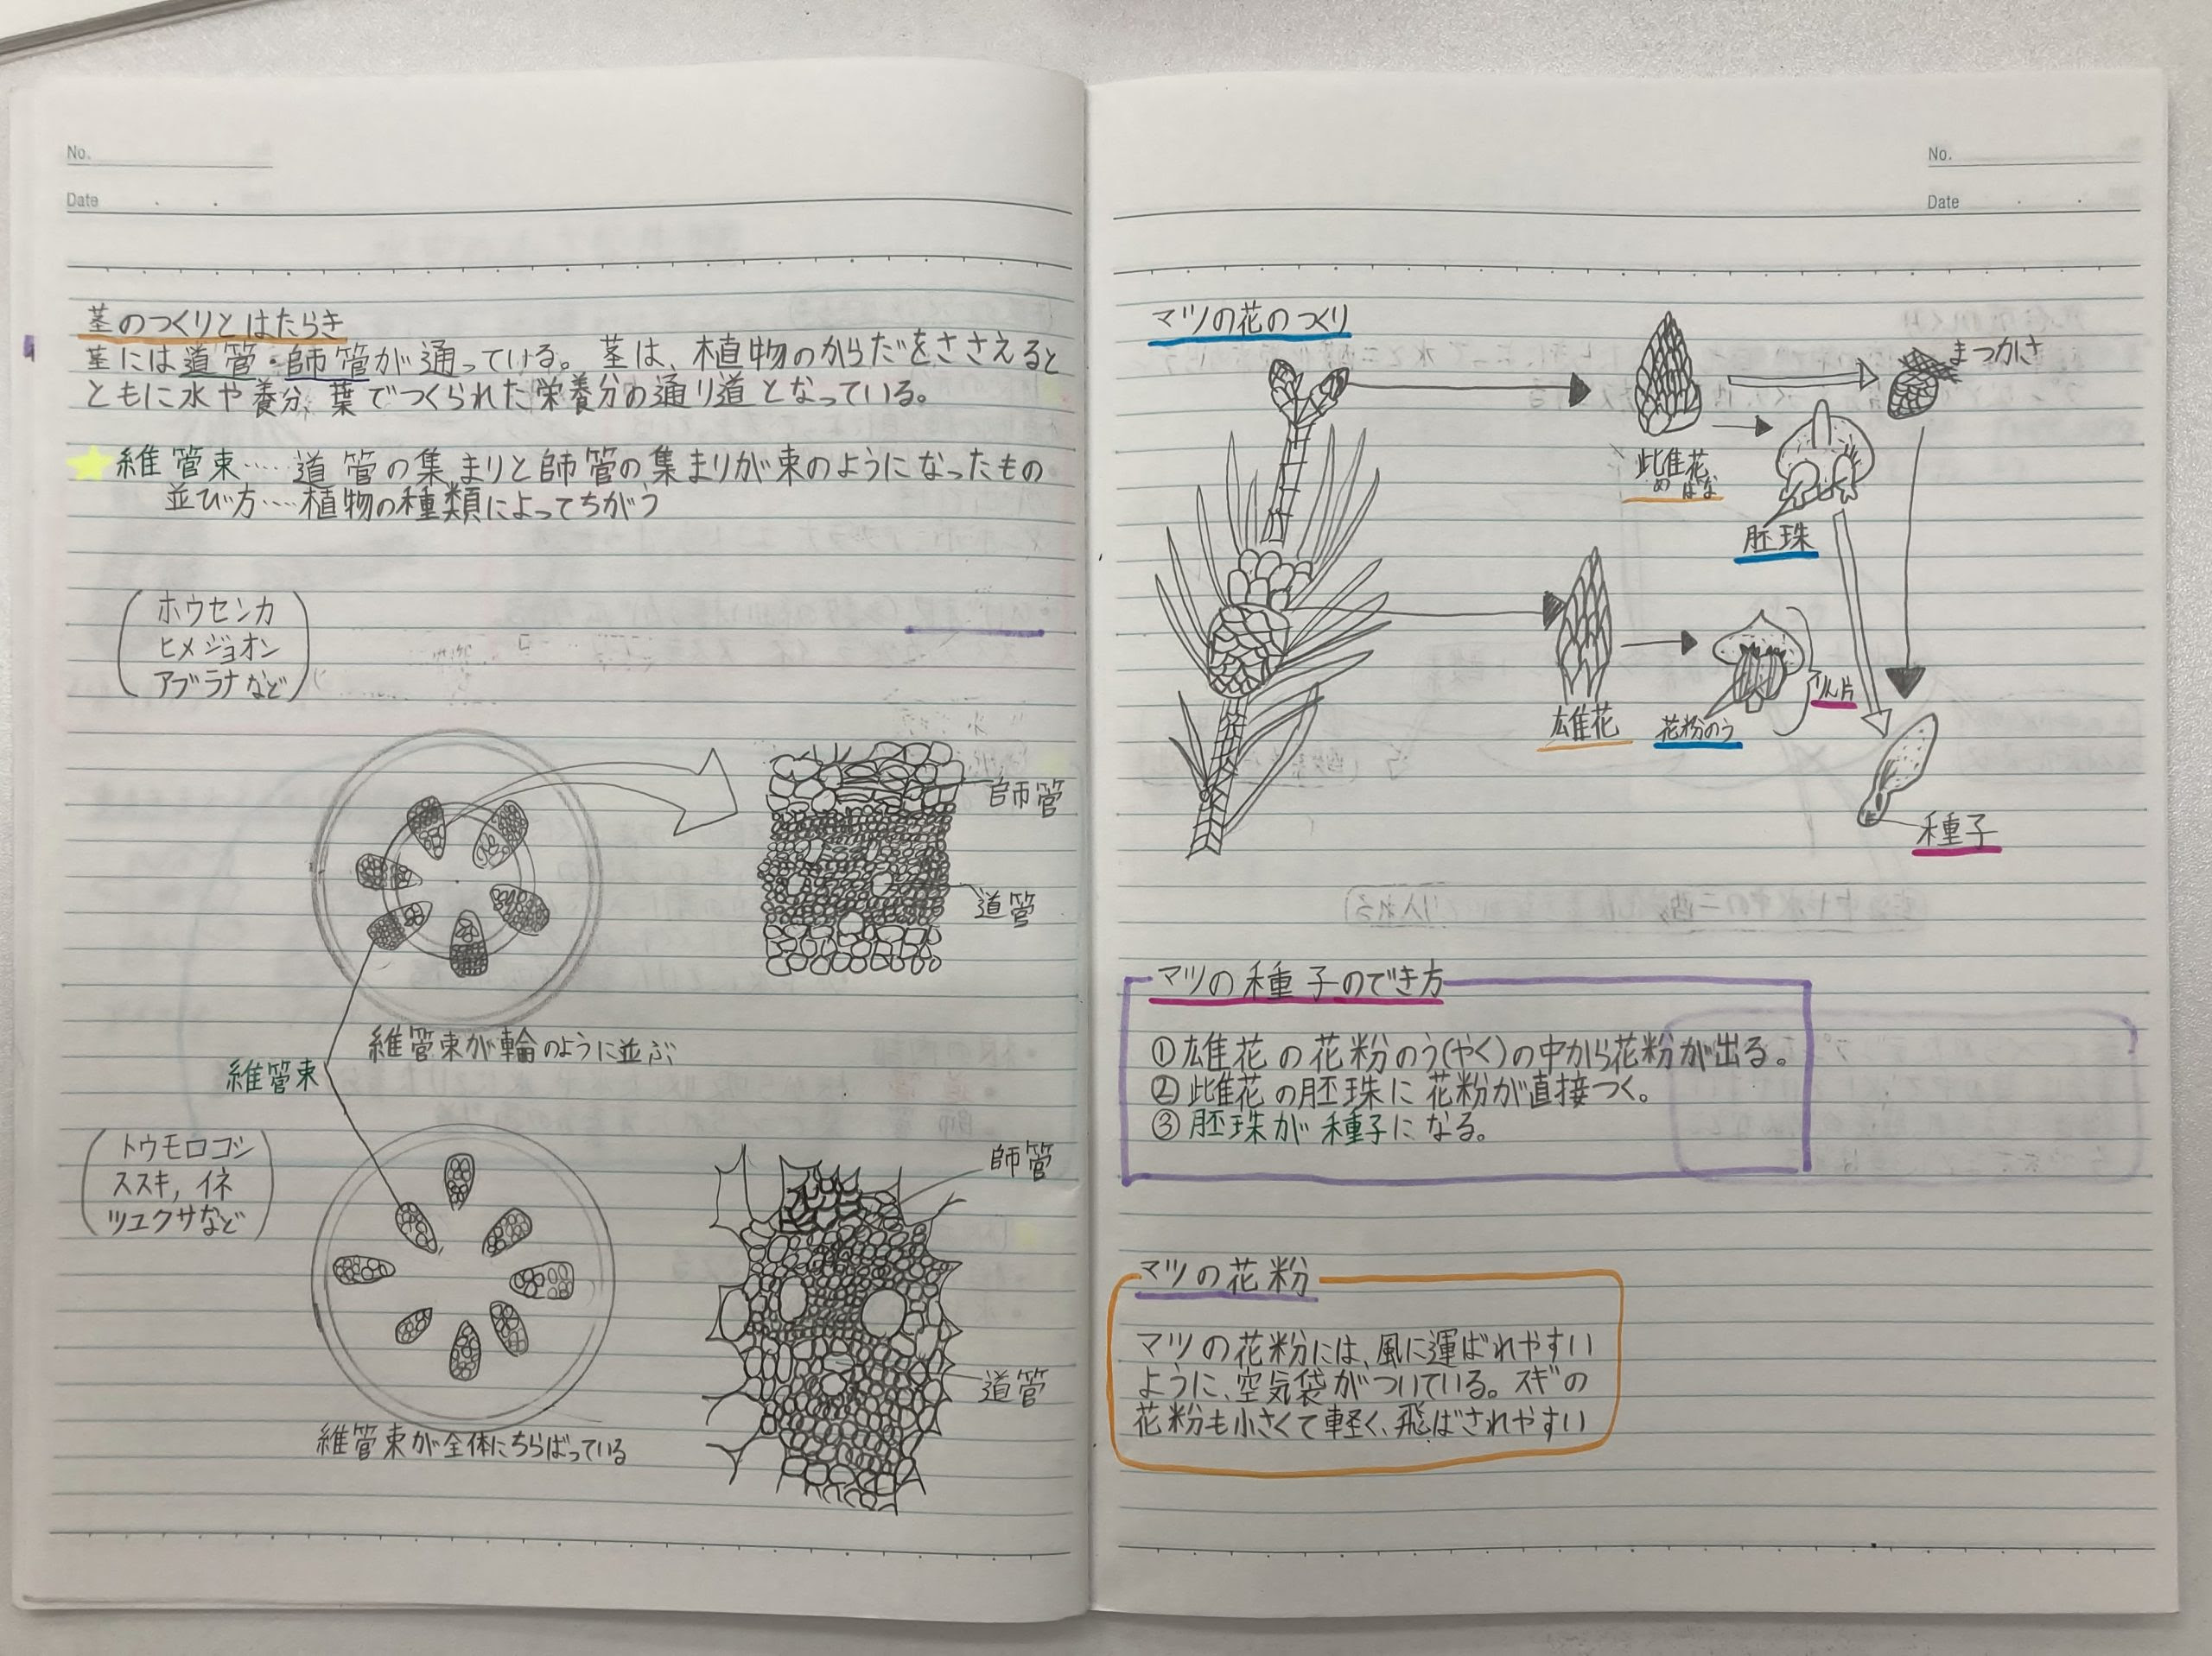 No.
Date
茎のつくりとはたらき
茎には道管・師管が通っている。茎は、植物のからだをささえると
ともに水や養分、葉でつくられた栄養分の通り道となっている。
維管束‥‥道管の集まりと師管の集まりが束のようになったもの
並び方‥‥植物の種類によってちがう
ホウセンカ
ヒメジョオン
アブラナなど
師管
道管
維管束が輪のように並ぶ
維管束
トウモロコシ
ススキ, イネ
ツユクサなど
師管
道管
維管束が全体にちらばっている
No.
Date
マツの花のつくり
まつかさ
雌花
めばな
胚珠
雄花
花粉のう
りん片
種子
マツの種子のでき方
①雄花の花粉のう(やく)の中から花粉が出る。
②雌花の胚珠に花粉が直接つく。
③胚珠が種子になる。
マツの花粉
マツの花粉には、風に運ばれやすい
ように、空気袋がついている。スギの
花粉も小さくて軽く、飛ばされやすい